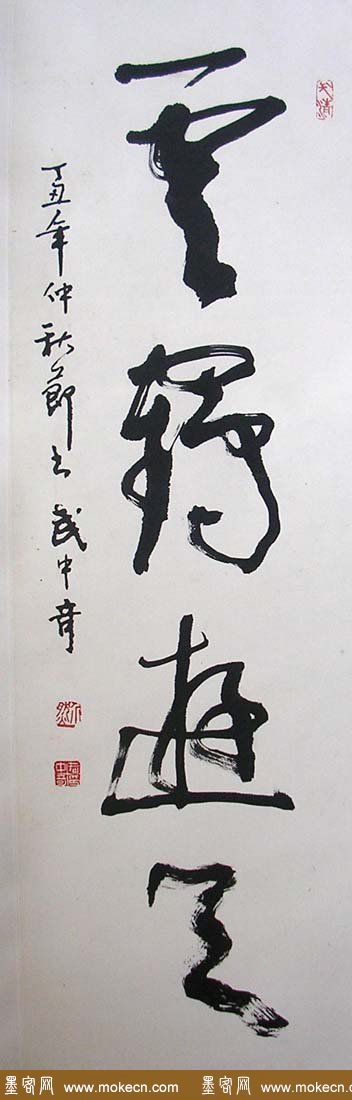 云鶴遊天
丁丑年仲秋節书 武中奇
墨客网 www.mokecn.com 墨客网 www.mokecn.com